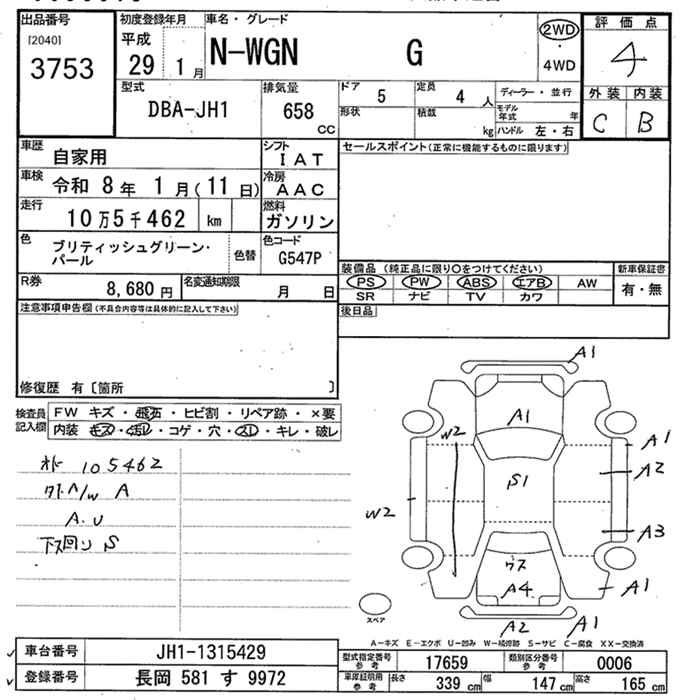 出品番号 初度登録年月 車名・グレード 評価点
[2040] 平成 2WD
3753 29 1月 N-WGN G ・ 4
4WD
型式 排気量 ドア 定員 ディーラー・並行 外装 内装
DBA-JH1 658 CC 5 4人 C B
形状 積載 kg モデル年式 年
ハンドル 左・右
車歴 自家用 シフト IAT セールスポイント(正常に機能するものに限ります)
車検 令和 8年 1月(11日) 冷房 AAC
走行 10万5千462 km 燃料 ガソリン
色 ブリティッシュグリーン・パール 色替 色コード G547P
装備品 (純正品に限り○をつけてください) 新車保証書
R券 8,680円 名変通知期限 月 日 PS PW ABS エアB AW 有・無
SR ナビ TV カワ
注意事項申告欄(不具合内容等は具体的に記入して下さい) 後日品
修復歴 有[箇所 ]
検査員記入欄 FW キズ・飛石・ヒビ割・リペア跡・×要
内装 キズ・汚レ・コゲ・穴・スレ・キレ・破レ
オド 105462
ワオトヘ/W A
A.U
下回り S
A1
A1
W2 A1
A2
S1
W2
A3
ウス
A4 A1
スペア
A2 A1
A-キズ E-エクボ U-凹み W-補修跡 S-サビ C-腐食 XX-交換済
車台番号 JH1-1315429 型式指定番号参考 17659 類別区分番号参考 0006
登録番号 長岡 581 す 9972 車庫証明用参考 長さ 339 cm 幅 147 cm 高さ 165 cm